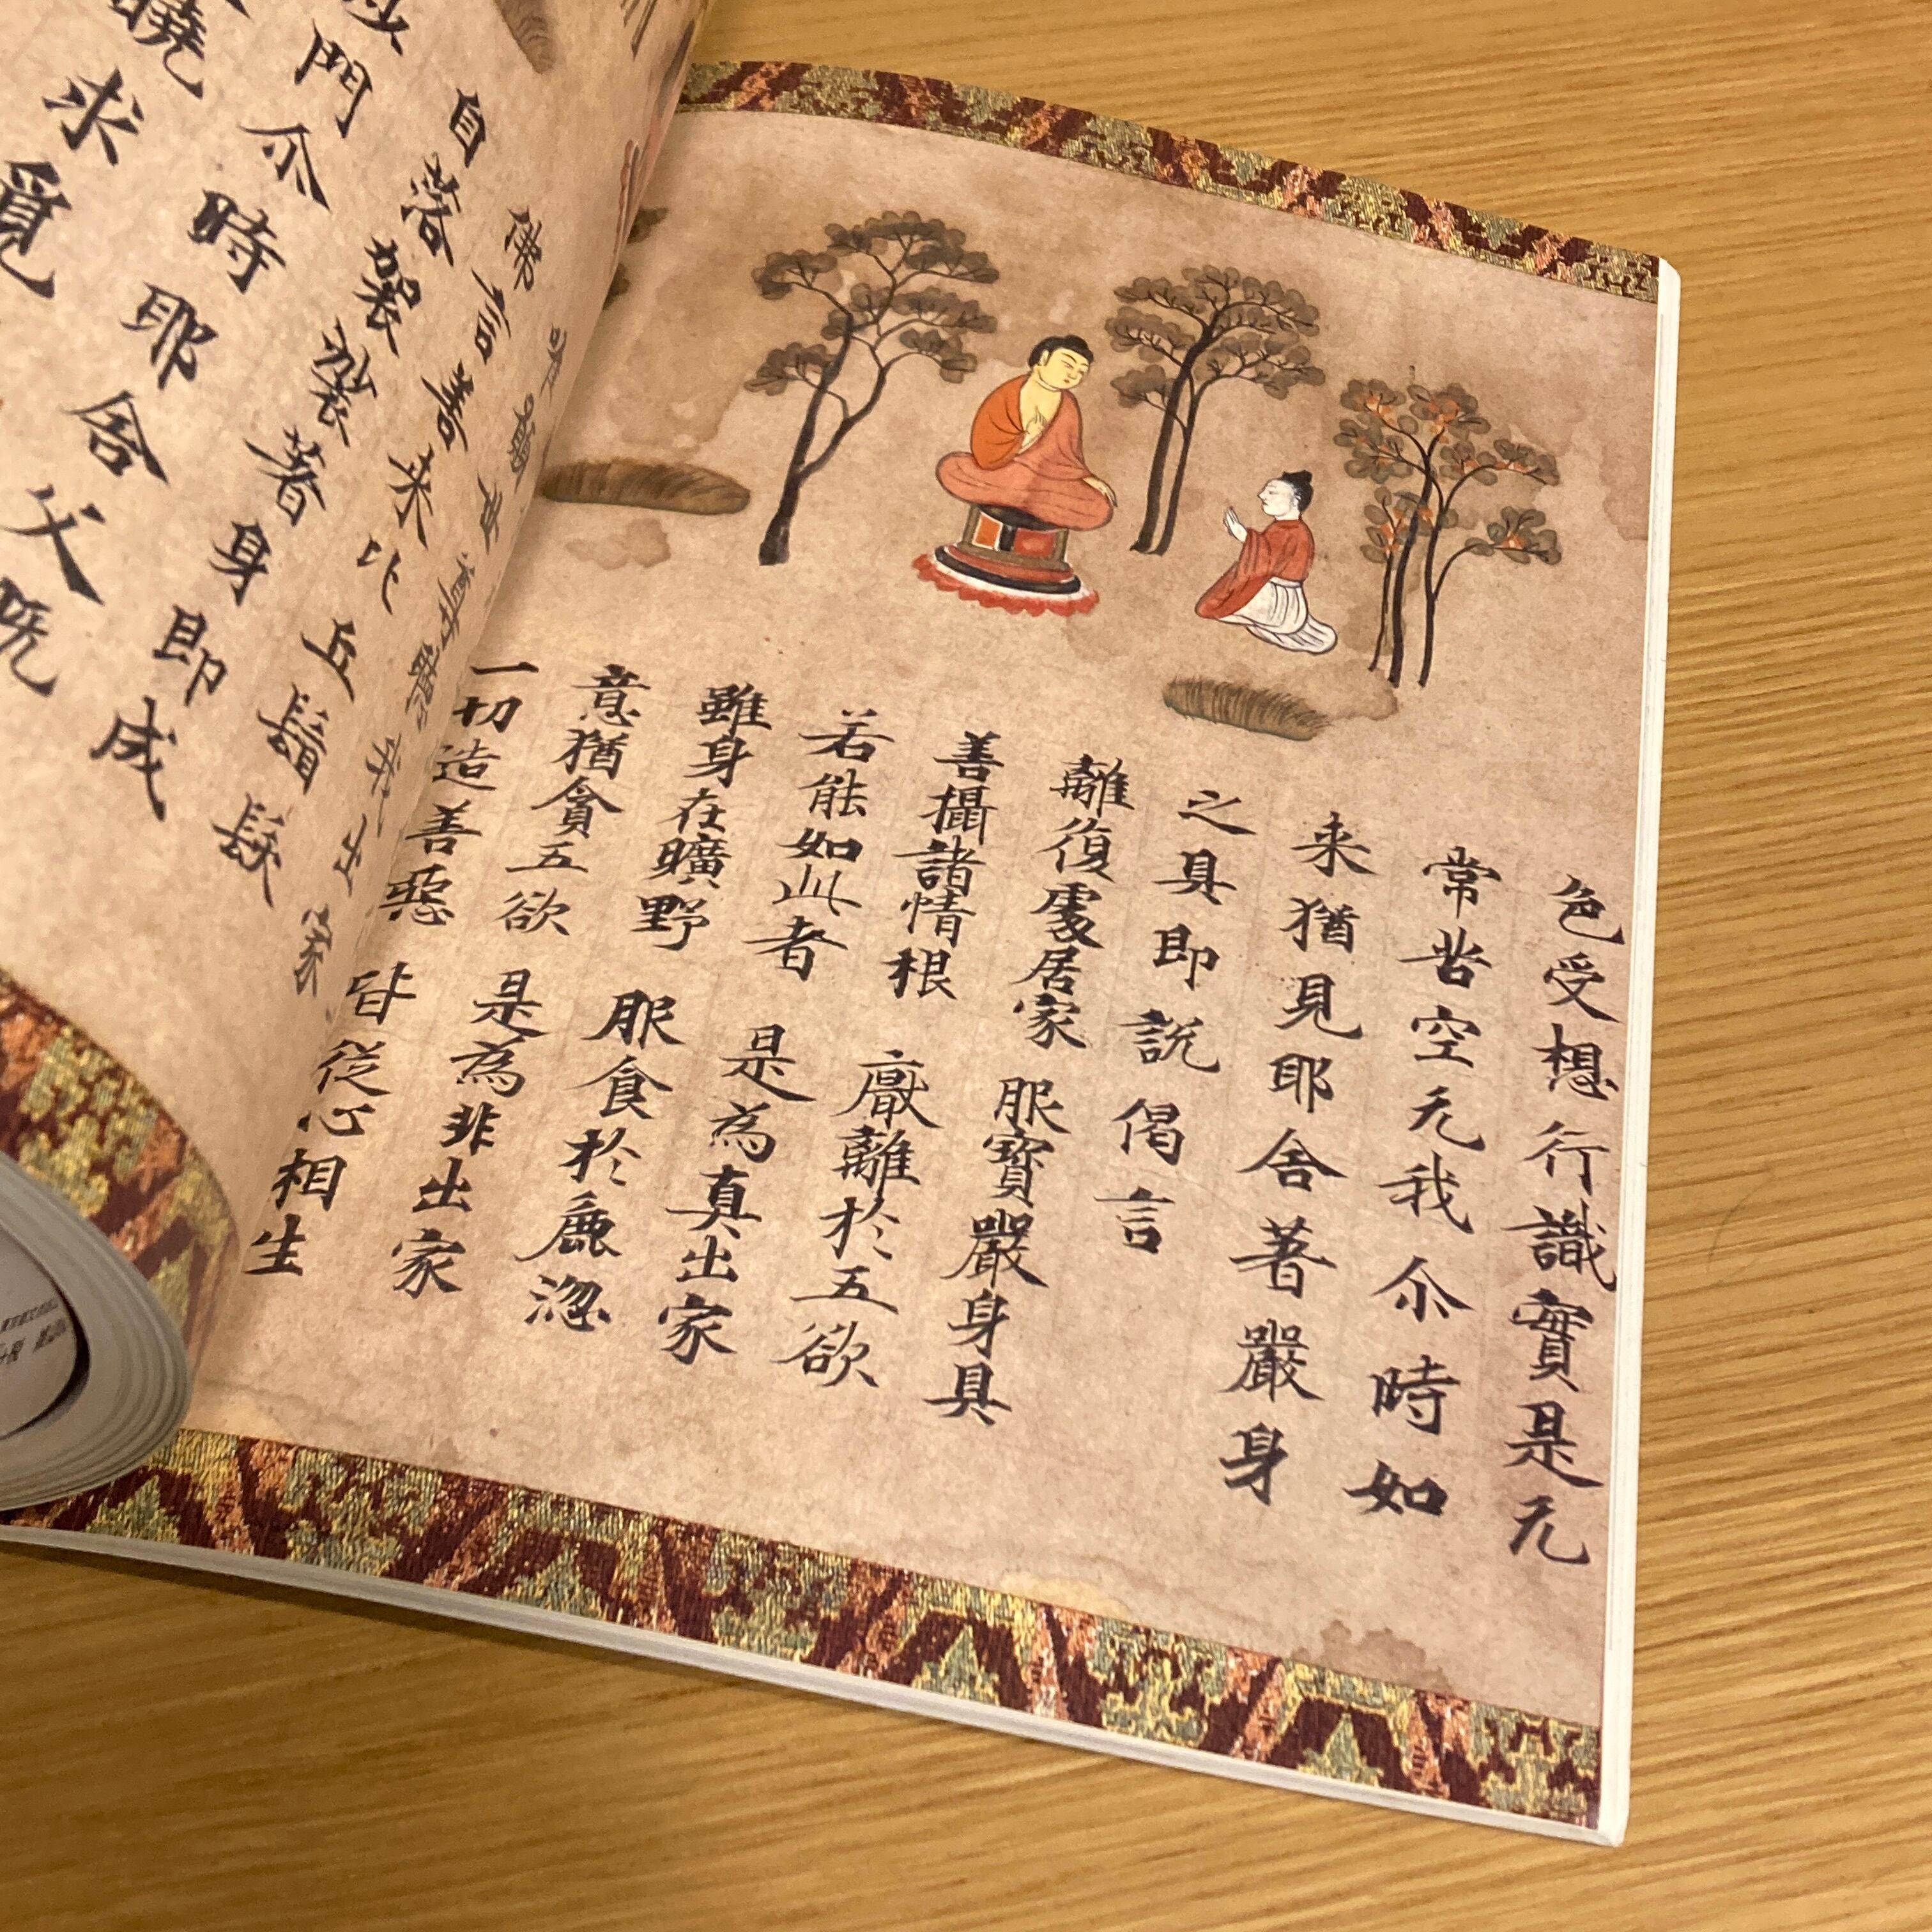 色受想行識實是无
常苦空无我尒時如
来猶見耶舎著嚴身
之具即說偈言
離復處居家 服寶嚴身具
善攝諸情根 厭離於五欲
若能如此者 是為真出家
雖身在曠野 服食於麁澁
意猶貪五欲 是為非出家
一切造善惡 皆從心相生
出家
佛言善来比丘鬚髮
自落袈裟著身即成
沙門尒時耶舎父既
曉求覓